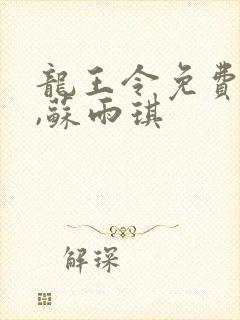 龍王令免費
,蘇雨琪
解琛